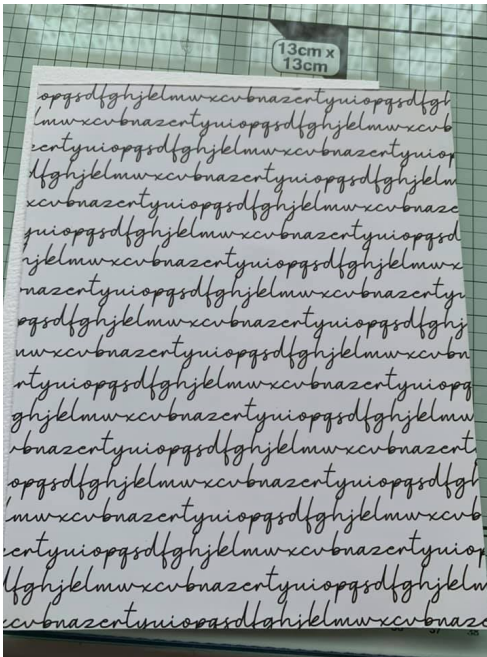 13cm x
13cm
opqsdfghjklmwxcvbnazertyuiopqsdfgh
lmwxcvbnazertyuiopqsdfghjklmwxcvb
zertyuiopqsdfghjklmwxcvbnazertyuiop
dfghjklmwxcvbnazertyuiopqsdfghjklm
xcvbnazertyuiopqsdfghjklmwxcvbnaze
yuiopqsdfghjklmwxcvbnazertyuiopqsd
hjklmwxcvbnazertyuiopqsdfghjklmwx
nazertyuiopqsdfghjklmwxcvbnazertyu
pqsdfghjklmwxcvbnazertyuiopqsdfghj
mwxcvbnazertyuiopqsdfghjklmwxcvbn
rtyuiopqsdfghjklmwxcvbnazertyuiopq
ghjklmwxcvbnazertyuiopqsdfghjklmw
vbnazertyuiopqsdfghjklmwxcvbnazert
opqsdfghjklmwxcvbnazertyuiopqsdfgh
mwxcvbnazertyuiopqsdfghjklmwxcvb
zertyuiopqsdfghjklmwxcvbnazertyuiop
dfghjklmwxcvbnazertyuiopqsdfghjklm
xcvbnazertyuiopqsdfghjklmwxcvbnaze